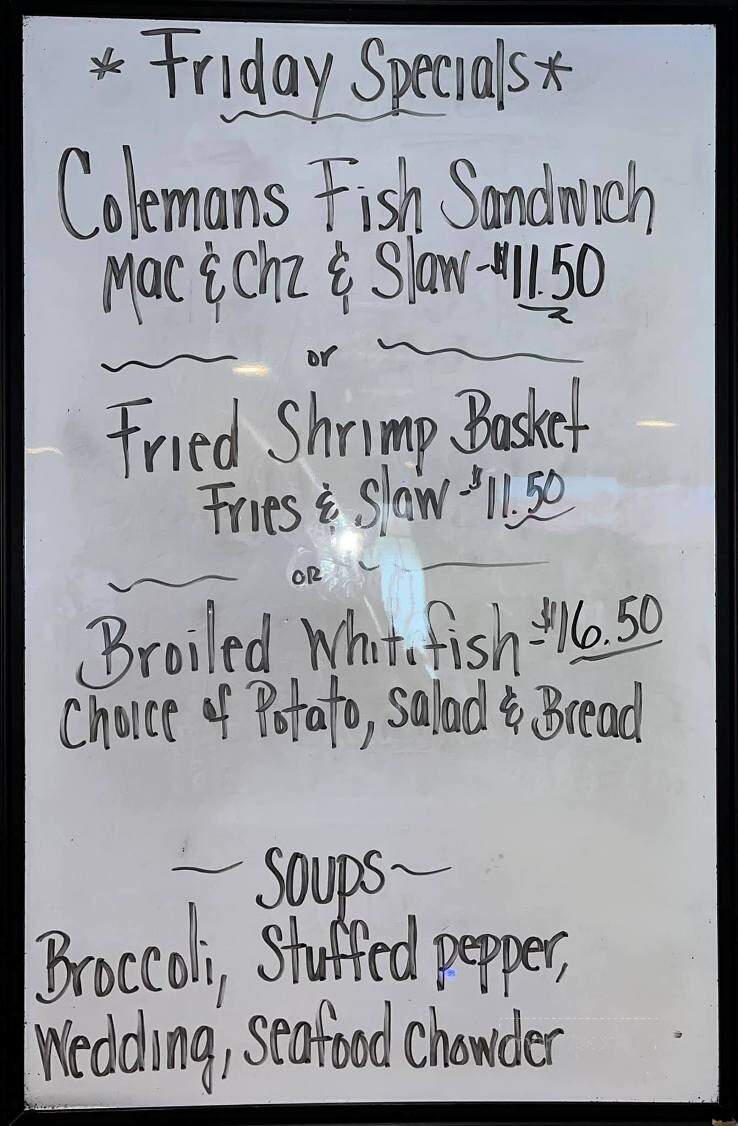 * Friday Specials *
Colemans Fish Sandwich
Mac & Chz & Slaw - $11.50
or
Fried Shrimp Basket
Fries & Slaw - $11.50
OR
Broiled Whitefish - $16.50
Choice of Potato, Salad & Bread
~ Soups ~
Broccoli, Stuffed pepper,
Wedding, Seafood Chowder